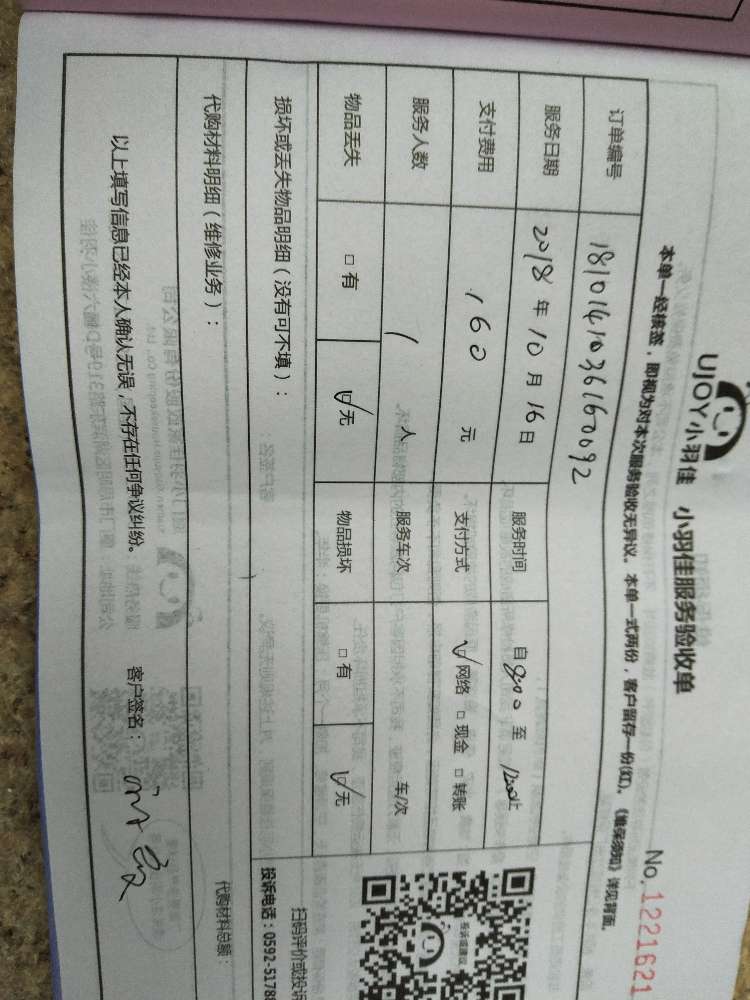 UJOY小羽佳 小羽佳服务验收单 No.1221621
本单一经核签，即视为对本次服务验收无异议。本单一式两份，客户留存一份(红)。《维保须知》详见背面。
订单编号 1810141036160092
服务日期 2018年10月16日 服务时间 自800至1200止
支付费用 160元 支付方式 ☑网络 □现金 □转账
服务人数 1人 服务车次 车/次
物品丢失 □有 ☑无 物品损坏 □有 ☑无
投诉或建议
扫码评价或投诉
投诉电话：0592-5178
损坏或丢失物品明细（没有可不填）：
代购材料明细（维修业务）： 代购材料总额：
以上填写信息已经本人确认无误，不存在任何争议纠纷。 客户签名：